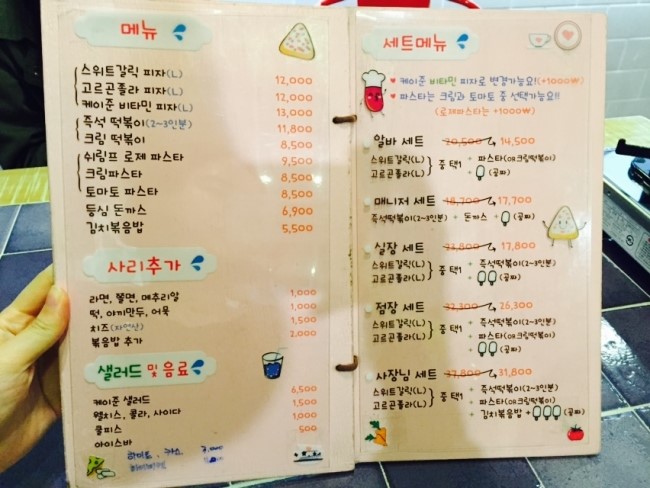 메뉴
스위트갈릭 피자(L) 12,000
고르곤졸라 피자(L) 12,000
케이준 비타민 피자(L) 13,000
즉석 떡볶이(2~3인분) 11,800
크림 떡볶이 8,500
쉬림프 로제 파스타 9,500
크림파스타 8,500
토마토 파스타 8,500
등심 돈까스 6,900
김치볶음밥 5,500
사리추가
라면, 쫄면, 메추리알 1,000
떡, 야끼만두, 어묵 1,000
치즈(자연산) 1,500
볶음밥 추가 2,000
샐러드 및 음료
케이준 샐러드 6,500
웰치스, 콜라, 사이다 1,500
쿨피스 1,000
아이스바 500
세트메뉴
♥ 케이준 비타민 피자로 변경가능요!(+1000₩)
♥ 파스타는 크림과 토마토 중 선택가능요!!
(로제파스타는 +1000₩)
알바 세트 20,500 14,500
스위트갈릭(L)
고르곤졸라(L) } 중 택1 + 파스타(or크림떡볶이)
+ (공짜)
매니저 세트 18,700 17,700
즉석떡볶이(2~3인분) + 돈까스 + (공짜)
실장 세트 17,800
스위트갈릭(L)
고르곤졸라(L) } 중 택1 + 즉석떡볶이(2~3인분)
+ (공짜)
점장 세트 32,300 26,300
스위트갈릭(L)
고르곤졸라(L) } 중 택1 + 즉석떡볶이(2~3인분)
+ 파스타(or크림떡볶이)
+ (공짜)
사장님 세트 37,800 31,800
스위트갈릭(L)
고르곤졸라(L) } 중 택1 + 즉석떡볶이(2~3인분)
+ 파스타(or크림떡볶이)
+ 김치볶음밥 + (공짜)